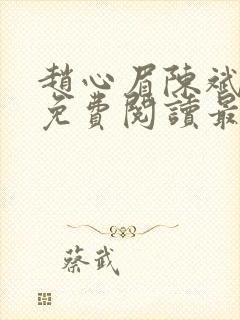 趙心眉陳斌
免費閱讀最
蔡武